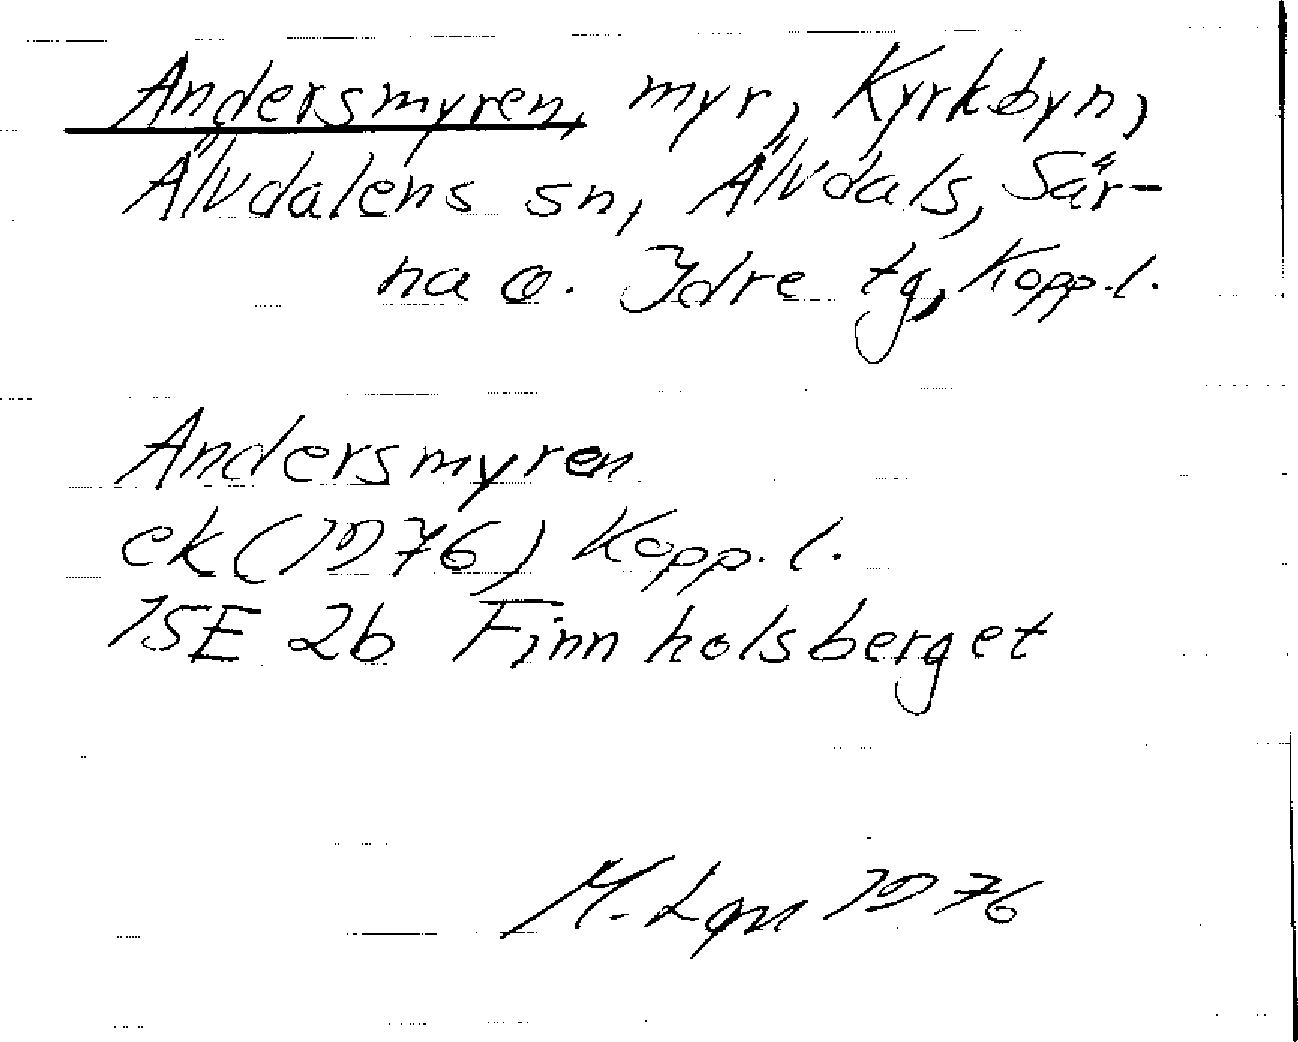 Andersmyren, myr, Kyrkbyn,
Älvdalens sn, Älvdals, Sär-
na o. Idre tg, Kopp. l.
Andersmyren
ek (1976) Kopp. l.
15E 2b Finnholsberget
M. 1976